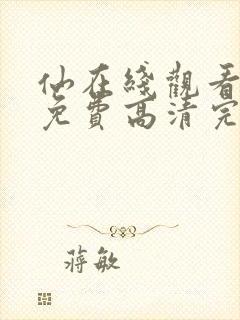 仙在綫觀看
免費高清完
蔣敏